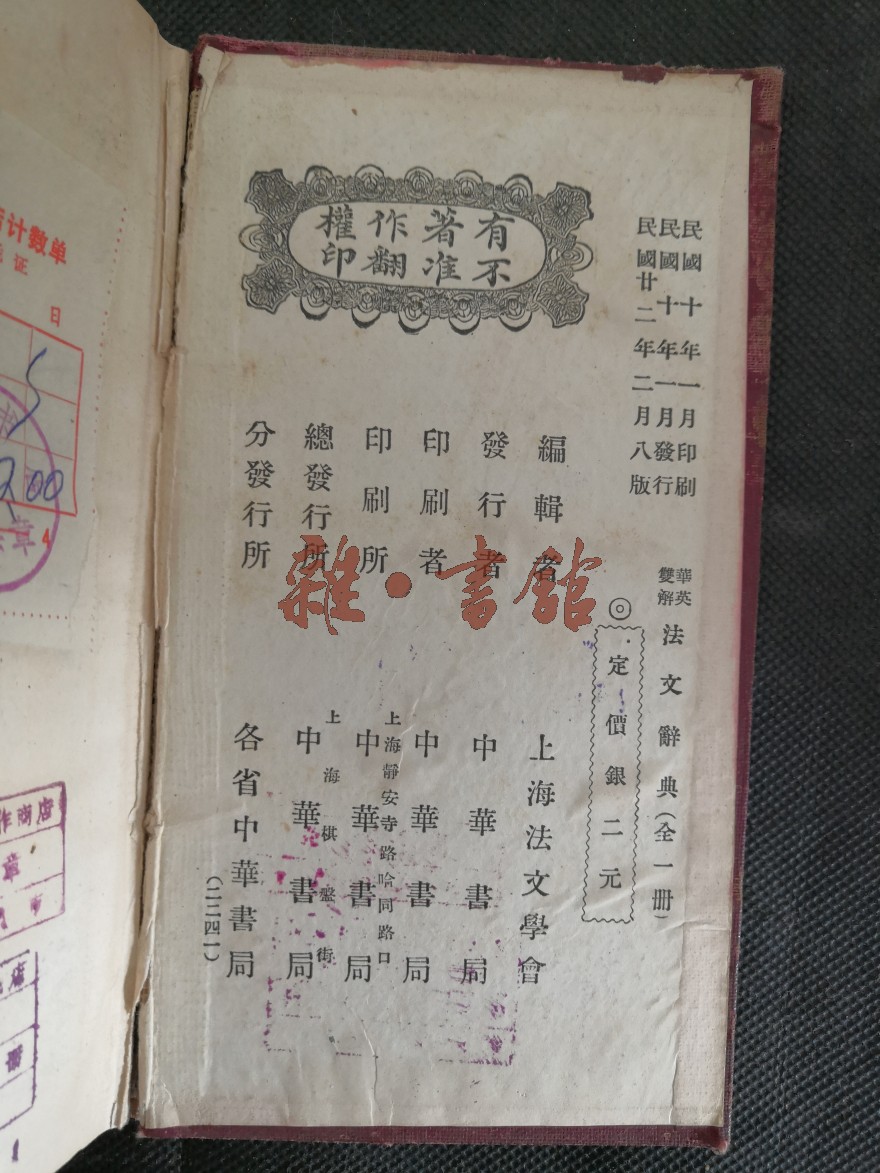 有著作權
不准翻印
民國十年一月印刷
民國十年一月發行
民國廿二年二月八版
華英
雙解
法文辭典（全一册）
◎定價銀二元
編輯者 上海法文學會
發行者 中華書局
印刷者 中華書局
上海靜安寺路哈同路口
印刷所 中華書局
上海棋盤街
總發行所 中華書局
分發行所 各省中華書局
（二二四一）
雜·書館
计数单
证
日
5
00
4
章
作商店
章
店